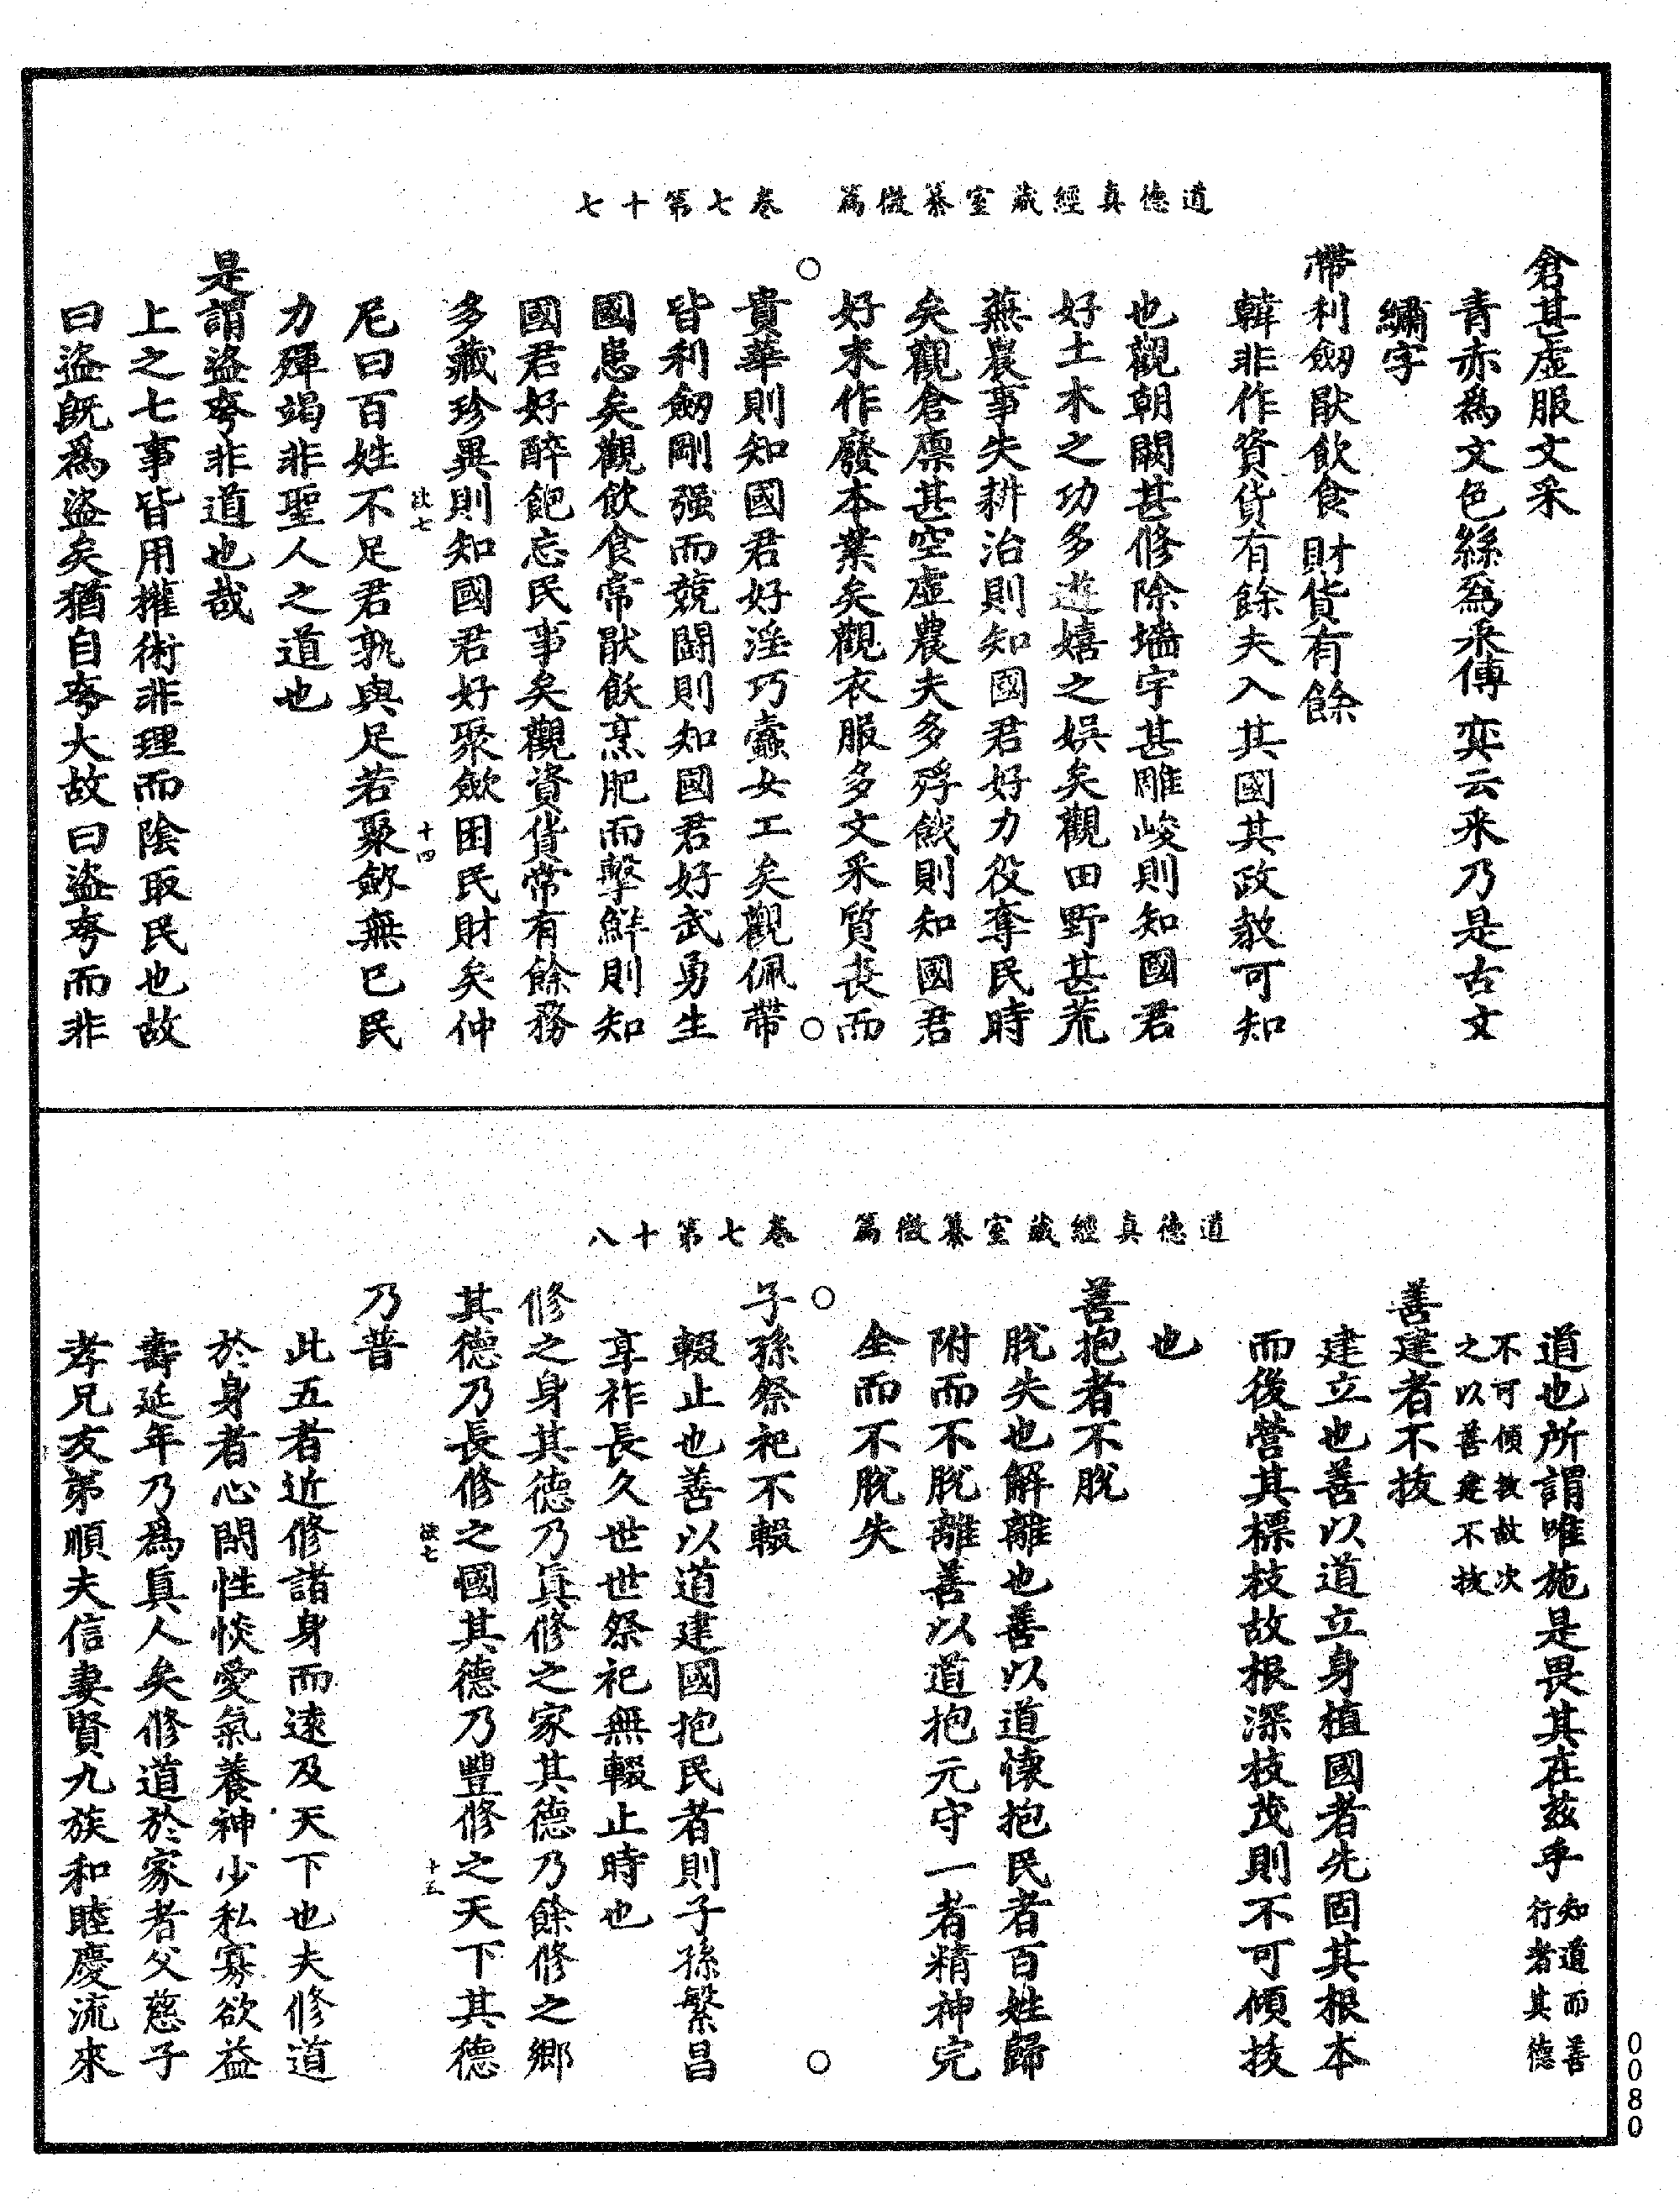 道德真經藏室纂微篇　卷七第十七
倉甚虛服文采
青赤為文色絲為采傅奕云采乃是古文
繡字
帶利劒猒飲食財貨有餘
韓非作資貨有餘夫入其國其政教可知
也觀朝闕甚修除墻宇甚雕峻則知國君
好土木之功多遊嬉之娛矣觀田野甚荒
蕪農事失耕治則知國君好力役奪民時
矣觀倉廪甚空虛農夫多殍餓則知國君
好末作廢本業矣觀衣服多文采質喪而
貴華則知國君好淫巧蠹女工矣觀佩帶
皆利劒剛强而競鬪則知國君好武勇生
國患矣觀飲食常猒飫烹肥而擊鮮則知
國君好醉飽忘民事矣觀資貨常有餘務
多藏珍異則知國君好聚歛困民財矣仲
尼曰百姓不足君孰與足若聚斂無已民
力殫竭非聖人之道也
是謂盜夸非道也哉
上之七事皆用權術非理而陰取民也故
曰盜旣為盜矣猶自夸大故曰盜夸而非
十四
道德真經藏室纂微篇　卷七第十八
道也所謂唯施是畏其在兹乎知道而善行者其德
不可傾拔故次之以善建不拔
善建者不拔
建立也善以道立身植國者先固其根本
而後營其標枝故根深枝茂則不可傾拔
也
善抱者不脫
脫失也解離也善以道懷抱民者百姓歸
附而不脫離善以道抱元守一者精神完
全而不脫失
子孫祭祀不輟
輟止也善以道建國抱民者則子孫繁昌
享祚長久世世祭祀無輟止時也
修之身其德乃真修之家其德乃餘修之鄉
其德乃長修之國其德乃豐修之天下其德
乃普
此五者近修諸身而遠及天下也夫修道
於身者心閑性惔愛氣養神少私寡欲益
壽延年乃為真人矣修道於家者父慈子
孝兄友弟順夫信妻賢九族和睦慶流來
十五
0080